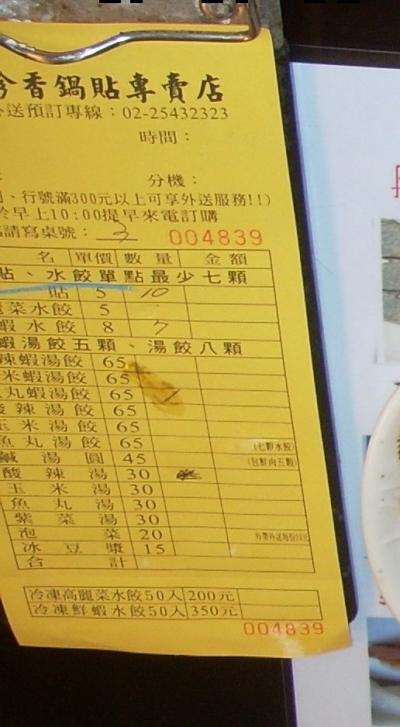 香鍋貼專賣店
送預訂專線：02-25432323
時間：
分機：
、行號滿300元以上可享外送服務!!)
早上10:00提早來電訂購
請寫桌號： 3 004839
名 單價 數量 金額
貼、水餃單點最少七顆
貼 5 10
菜水餃 5
蝦水餃 8 7
蝦湯餃五顆、湯餃八顆
辣蝦湯餃 65
米蝦湯餃 65
丸蝦湯餃 65
辣湯餃 65
米湯餃 65
魚丸湯餃 65 (七顆水餃)
鹹湯圓 45 (包鮮肉五顆)
酸辣湯 30
玉米湯 30
魚丸湯 30
紫菜湯 30
泡菜 20
冰豆漿 15
合計
冷凍高麗菜水餃50入 200元
冷凍鮮蝦水餃50入 350元
004839